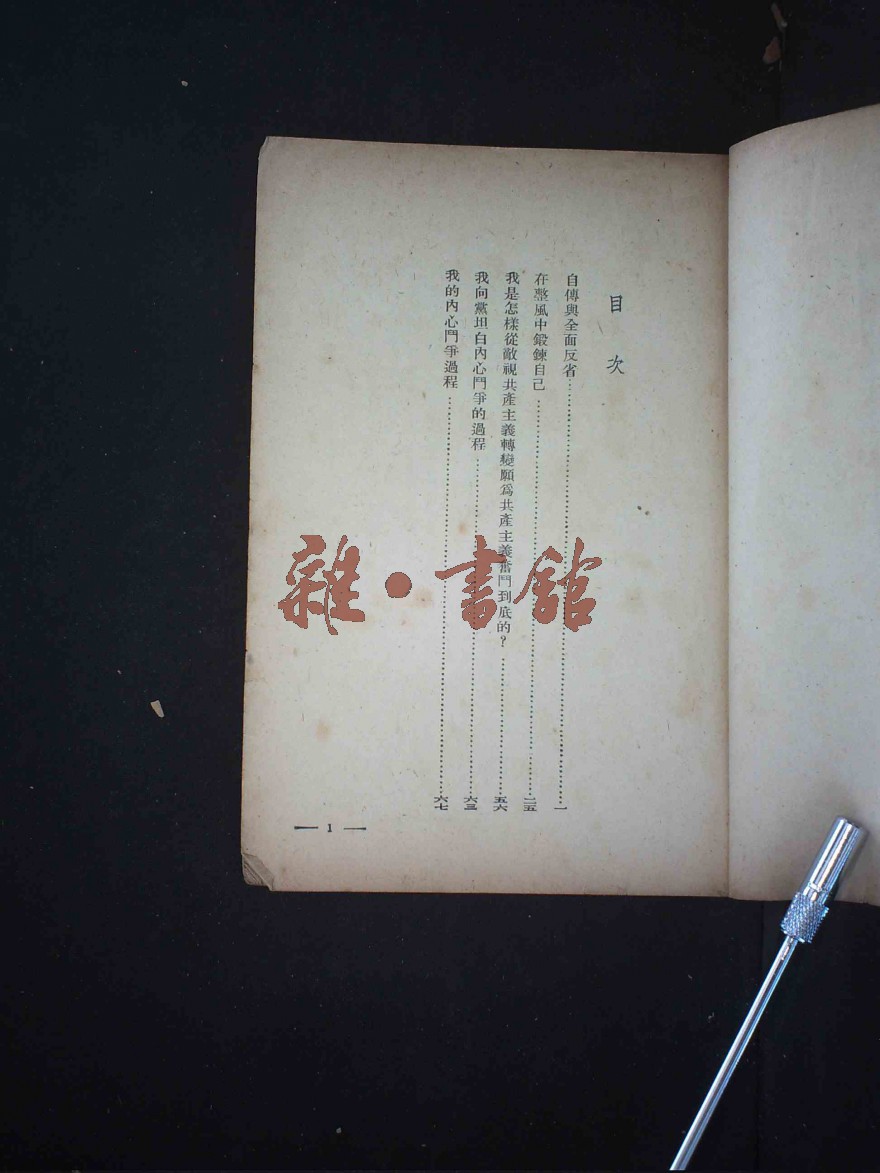 目次
自傳與全面反省……一
在整風中鍛鍊自己……二五
我是怎樣從敵視共產主義轉變願爲共產主義奮鬥到底的？……五六
我向黨坦白內心鬥爭的過程……六三
我的內心鬥爭過程……六七
— 1 —
雜·書館